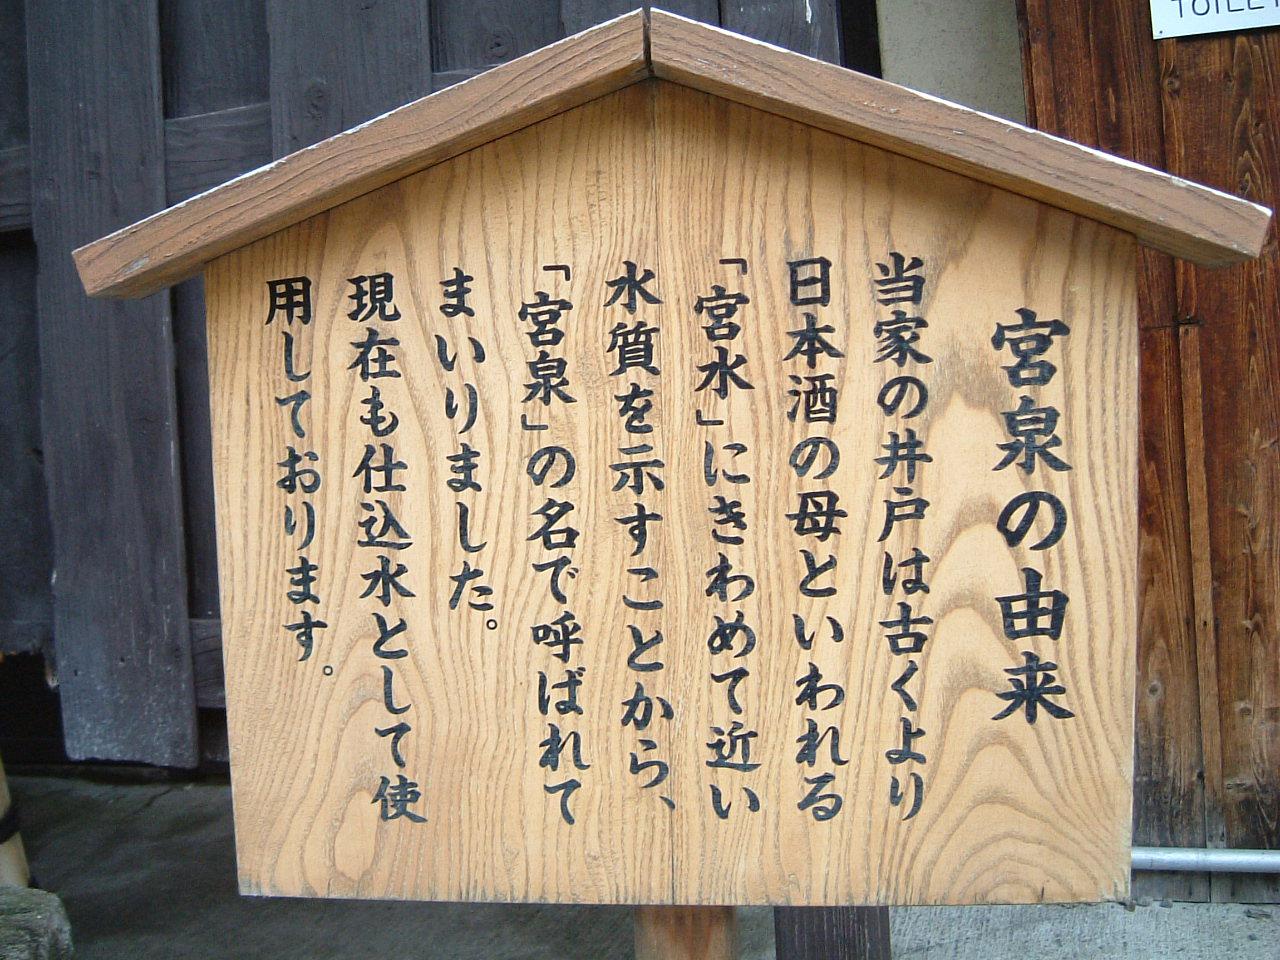 宮泉の由来
当家の井戸は古くより
日本酒の母といわれる
「宮水」にきわめて近い
水質を示すことから、
「宮泉」の名で呼ばれて
まいりました。
現在も仕込水として使
用しております。
TOILET